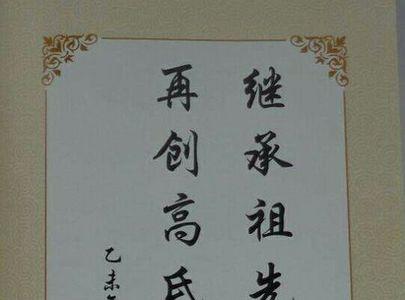 继承祖先
再创高氏
乙未年